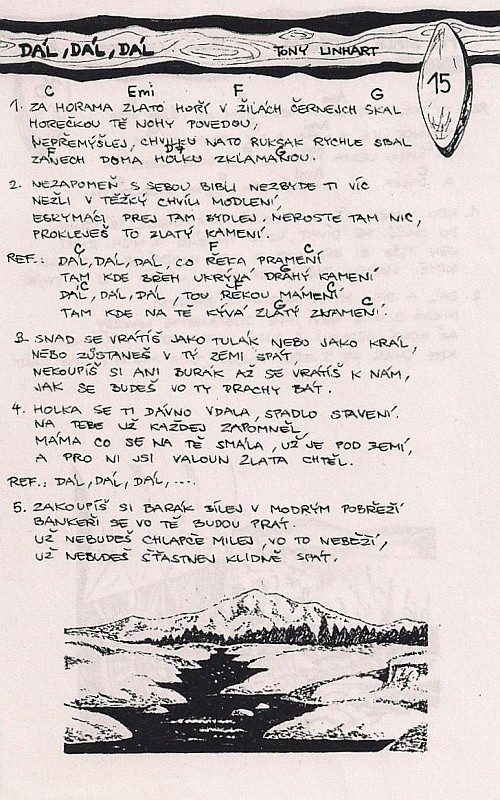 DÁL, DÁL, DÁL TONY LINHART
15
C Emi F G
1. ZA HORAMA ZLATO HOŘÍ V ŽILÁCH ČERNEJCH SKAL
HOREČKOU TĚ NOHY POVEDOU,
NEPŘEMÝŠLEJ, CHVILKU NATO RUKSAK RYCHLE SBAL
F G
ZANECH DOMA HOLKU ZKLAMANOU.
2. NEZAPOMEŇ S SEBOU BIBLI NEZBYDE TI VÍC
NEŽLI V TĚŽKÝ CHVÍLI MODLENÍ,
ESKYMÁCI PREJ TAM BYDLEJ. NEROSTE TAM NIC,
PROKLEJEŠ TO ZLATÝ KAMENÍ.
C F C
REF.: DÁL, DÁL, DÁL, CO ŘEKA PRAMENÍ
G
TAM KDE BŘEH UKRÝVÁ DRAHÝ KAMENÍ
C F C
DÁL, DÁL, DÁL, TOU ŘEKOU MÁMENÍ
G C
TAM KDE NA TĚ KÝVÁ ZLATÝ ZNAMENÍ.
3. SNAD SE VRÁTÍŠ JAKO TULÁK NEBO JAKO KRÁL,
NEBO ZŮSTANEŠ V TÝ ZEMI SPÁT,
NEKOUPÍŠ SI ANI BURÁK AŽ SE VRÁTÍŠ K NÁM,
JAK SE BUDEŠ VO TY PRACHY BÁT.
4. HOLKA SE TI DÁVNO VDALA, SPADLO STAVENÍ.
NA TEBE UŽ KAŽDEJ ZAPOMNĚL,
MÁMA CO SE NA TĚ SMÁLA, UŽ JE POD ZEMÍ,
A PRO NI JSI VALOUN ZLATA CHTĚL.
REF.: DÁL, DÁL, DÁL, ...
5. ZAKOUPÍŠ SI BARÁK BÍLEJ V MODRÝM POBŘEŽÍ
BANKÉŘI SE VO TĚ BUDOU PRÁT.
UŽ NEBUDEŠ CHLAPČE MILEJ, VO TO NEBĚŽÍ,
UŽ NEBUDEŠ ŠŤASTNEJ KLIDNĚ SPÁT.